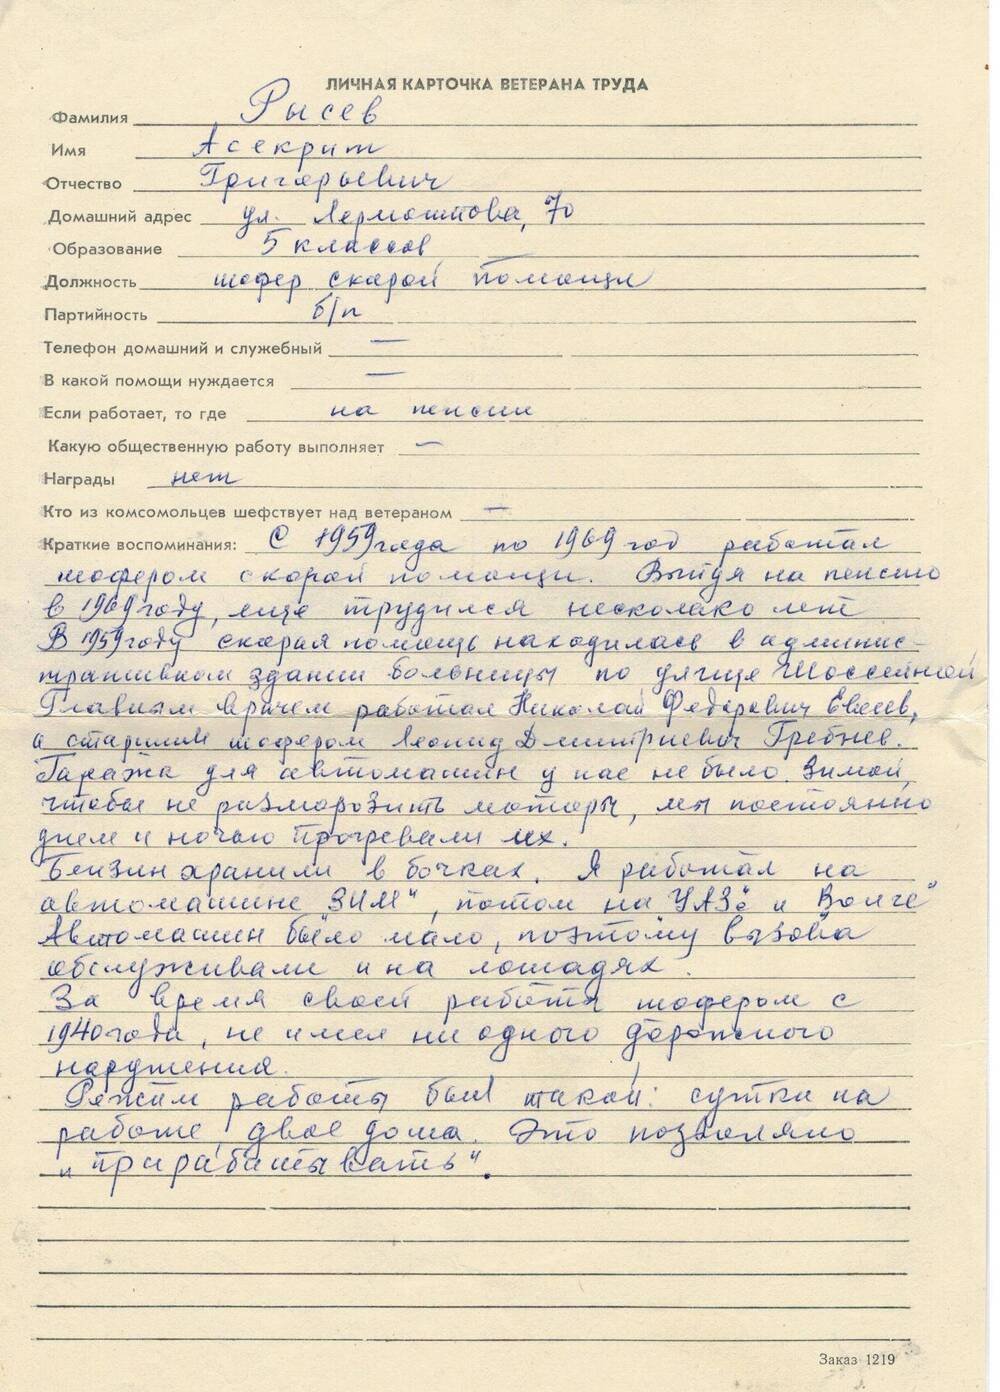 ЛИЧНАЯ КАРТОЧКА ВЕТЕРАНА ТРУДА
Фамилия Рысев
Имя Асекрит
Отчество Григорьевич
Домашний адрес ул. Лермонтова, 70
Образование 5 классов
Должность шофер скорой помощи
Партийность б/п
Телефон домашний и служебный —
В какой помощи нуждается —
Если работает, то где на пенсии
Какую общественную работу выполняет —
Награды нет
Кто из комсомольцев шефствует над ветераном —
Краткие воспоминания: С 1959 года по 1969 год работал
шофером скорой помощи. Выйдя на пенсию
в 1969 году, еще трудился несколько лет
В 1959 году скорая помощь находилась в админис-
тративном здании больницы по улице Шоссейной
Главным врачем работал Николай Федорович Евсеев,
а старшим шофером Леонид Дмитриевич Гребнев.
Гаража для автомашин у нас не было. Зимой,
чтобы не разморозить моторы, мы постоянно
днем и ночью прогревали их.
Бензин хранили в бочках. Я работал на
автомашине "ЗИМ", потом на УАЗе и Волге"
Автомашин было мало, поэтому вызова
обслуживали и на лошадях.
За время своей работы шофером с
1940 года, не имел ни одного дорожного
нарушения.
Режим работы был такой: сутки на
работе, двое дома. Это позволяло
„прирабатывать".
Заказ 1219